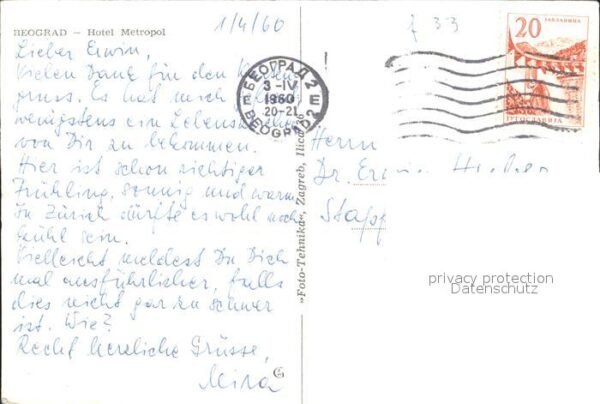 BEOGRAD — Hotel Metropol
1/4/60
Lieber Erwin,
Vielen Dank für den
gruss. Es hat mich
wenigstens ein Lebenszeichen
von Dir zu bekommen.
Hier ist schon richtiger
Frühling, sonnig und warm
In Zürich dürfte es wohl noch
kühl sein.
Vielleicht meldest Du Dich
mal ausführlicher, falls
dies nicht gar zu schwer
ist. Wie?
Recht herzliche Grüsse,
Mira
»Foto-Tehnika«, Zagreb, Ilica
БЕОГРАД 2
3-IV
1960
20-21
BEOGRAD 2
f 33
ЈУГОСЛАВИЈА
20
Herrn
Dr. Erwin
privacy protection
Datenschutz